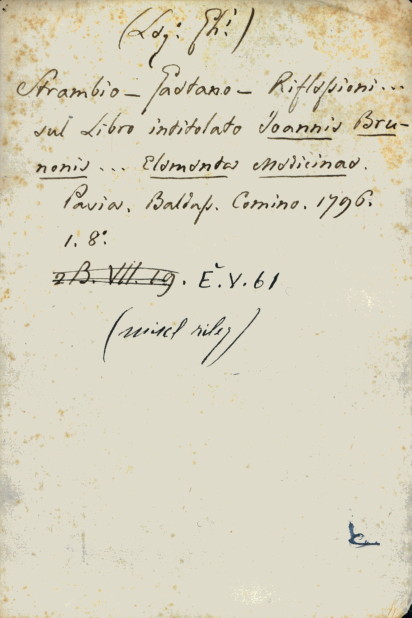 (Legi: Chi:)
Strambio - Gaetano - Riflessioni...
sul Libro intitolato Joannis Bru-
nonis ... Elementa Medicinae.
Pavia. Baldas. Comino. 1796.
1. 8.º
2 B. VII. 19. E. V. 61
(miscel rileg)